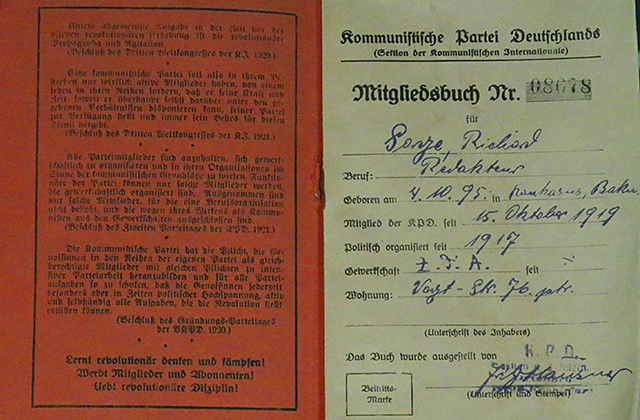 Unsere allgemeine Aufgabe in der Zeit vor der
offenen revolutionären Erhebung ist die revolutionäre
Propaganda und Agitation.
(Beschluß des Dritten Weltkongresses der K.I. 1920.)
Eine kommunistische Partei soll also in ihrem Be-
stehen nur wirklich aktive Mitglieder haben, von einem
jeden in ihren Reihen fordern, daß er seine Kraft und
Zeit soweit er überhaupt selbst darüber unter den ge-
gebenen Verhältnissen disponieren kann, seiner Partei
zur Verfügung stellt und immer sein Bestes für diesen
Dienst hergibt.
(Beschluß des Dritten Weltkongresses der K.I. 1921.)
Alle Parteimitglieder sind anzuhalten, sich gewerk-
schaftlich zu organisieren und in ihren Organisationen im
Sinne der kommunistischen Grundsätze zu wirken. Funktio-
näre der Partei können nur solche Mitglieder werden,
die gewerkschaftlich organisiert sind. Ausgenommen sind
nur solche Mitglieder, für die eine Berufsorganisation
nicht besteht, und die wegen ihres Wirkens als Kommu-
nisten aus den Gewerkschaften ausgeschlossen sind.
(Beschluß des Zweiten Parteitages der KPD. 1921.)
Die Kommunistische Partei hat die Pflicht, die Ge-
nossinnen in den Reihen der eigenen Partei als gleich-
berechtigte Mitglieder mit gleichen Pflichten zu inten-
siver Parteiarbeit heranzubilden und für alle Partei-
aufgaben so zu schulen, daß die Genossinnen jederzeit
besonders aber in Zeiten politischer Hochspannung, aktiv
und selbständig alle Aufgaben, die die Revolution stellt
erfüllen können.
(Beschluß des Gründungs-Parteitages
der VKPD. 1920.)
Lernt revolutionär denken und kämpfen!
Werbt Mitglieder und Abonnenten!
Uebt revolutionäre Disziplin!
Kommunistische Partei Deutschlands
(Sektion der Kommunistischen Internationale)
Mitgliedsbuch Nr. 08678
für
Sorge, Richard
Beruf: Redakteur
Geboren am 4. 10. 95. in Kaukasus, Baku
Mitglied der KPD. seit 15. Oktober 1919
Politisch organisiert seit 1917
Gewerkschaft Z. d. A. seit
Wohnung: Vogt-Str. 76. ptr.
(Unterschrift des Inhabers)
Das Buch wurde ausgestellt von K.P.D.
(Unterschrift und Stempel)
Beitritts-
Marke